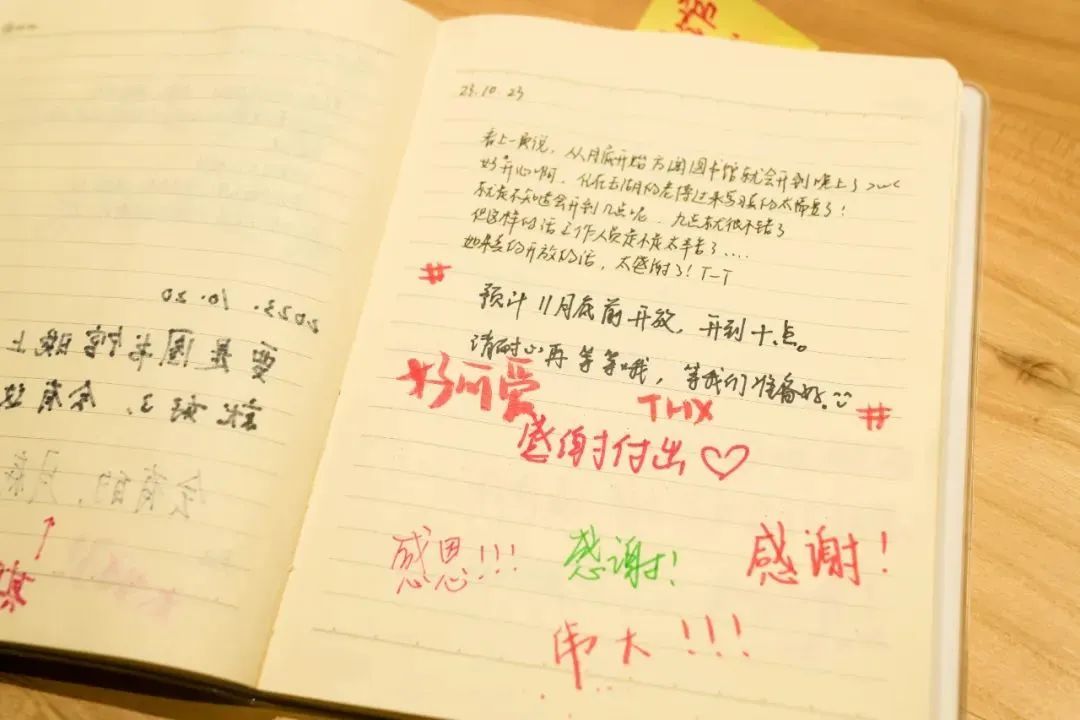 2023.10.20
要是图书馆晚上
就好了,会有这
会有的,
23.10.23
看上一页说,从月底开始方闻图书馆就会开到晚上了>w<
好开心啊,在玉湖的老博过来学习真的太了!
就是不知道会开到几点呢,九点就很不错了
但这样的话工作人员是不是太辛苦了....
如果真的开放的话,太感谢了!T-T
#
预计11月底前开放,开到十点。
请耐心再等等哦,等我们准备好.
好可爱 THX #
感谢付出♡
感恩!!! 感谢! 感谢!
伟大!!!